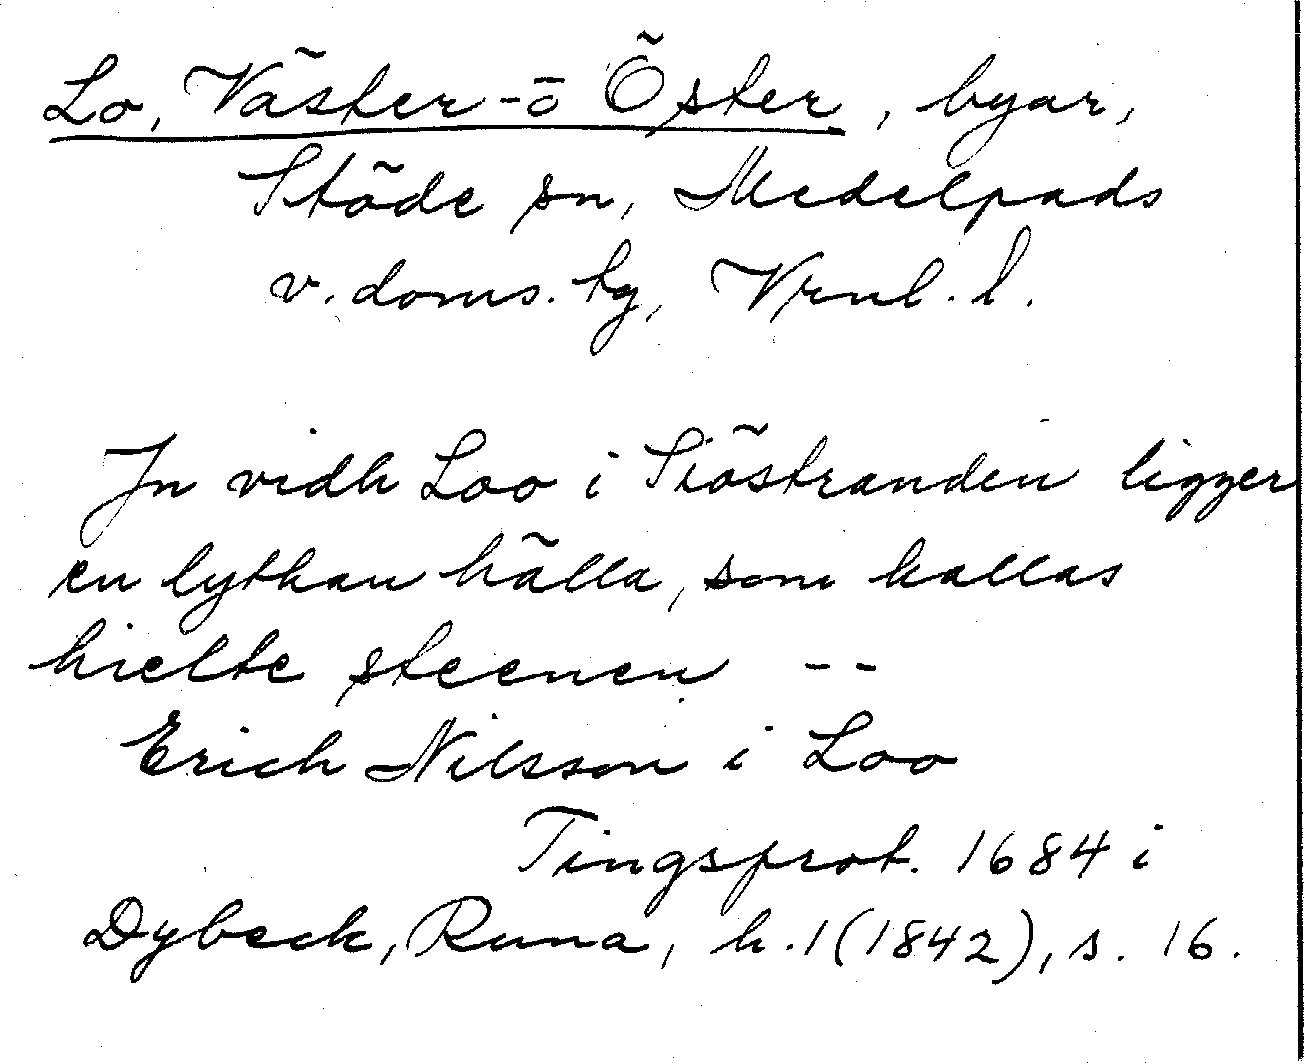 Lo, Väster- o Öster, byar,
Stöde sn, Medelpads
v. doms. tg, Vrnl. l.
Jn vidh Loo i Siöstranden ligger
en lythan hälla, som kallas
hielte steenen --
Erich Nilsson i Loo
Tingsprot. 1684 i
Dybeck, Runa, h. 1 (1842), s. 16.